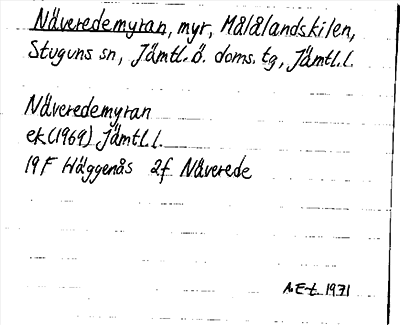 Näveredemyran, myr, Målålandskilen,
Stuguns sn, Jämtl. ö. doms. tg, Jämtl. l.
Näveredemyran
ek (1969) Jämtl. l.
19F Häggenås 2f Näverede
A.E-t 1971